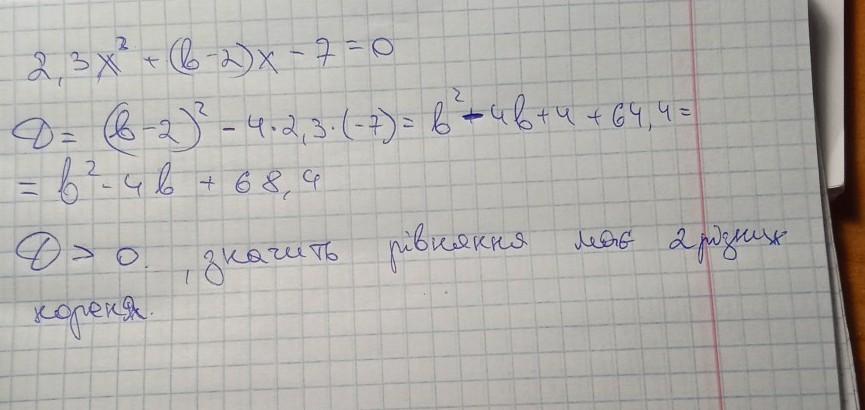 2,3x² + (b-2)x - 7 = 0
D = (b-2)² - 4·2,3·(-7) = b² - 4b + 4 + 64,4 =
= b² - 4b + 68,4
D > 0. , значить рівняння має 2 різних
кореня.